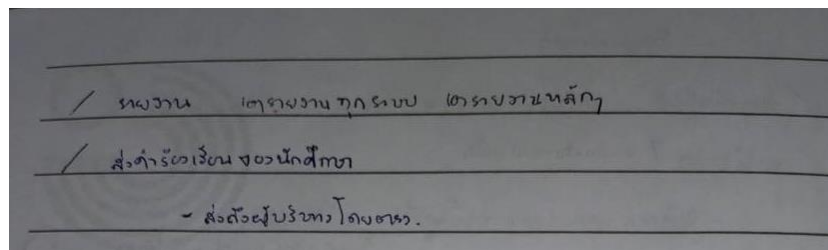 / รายงาน เอารายงานทุกระบบ เอารายงานหลักๆ
/ ส่งคำร้องเรียนของนักศึกษา
- ส่งถึงผู้บริหารโดยตรง.